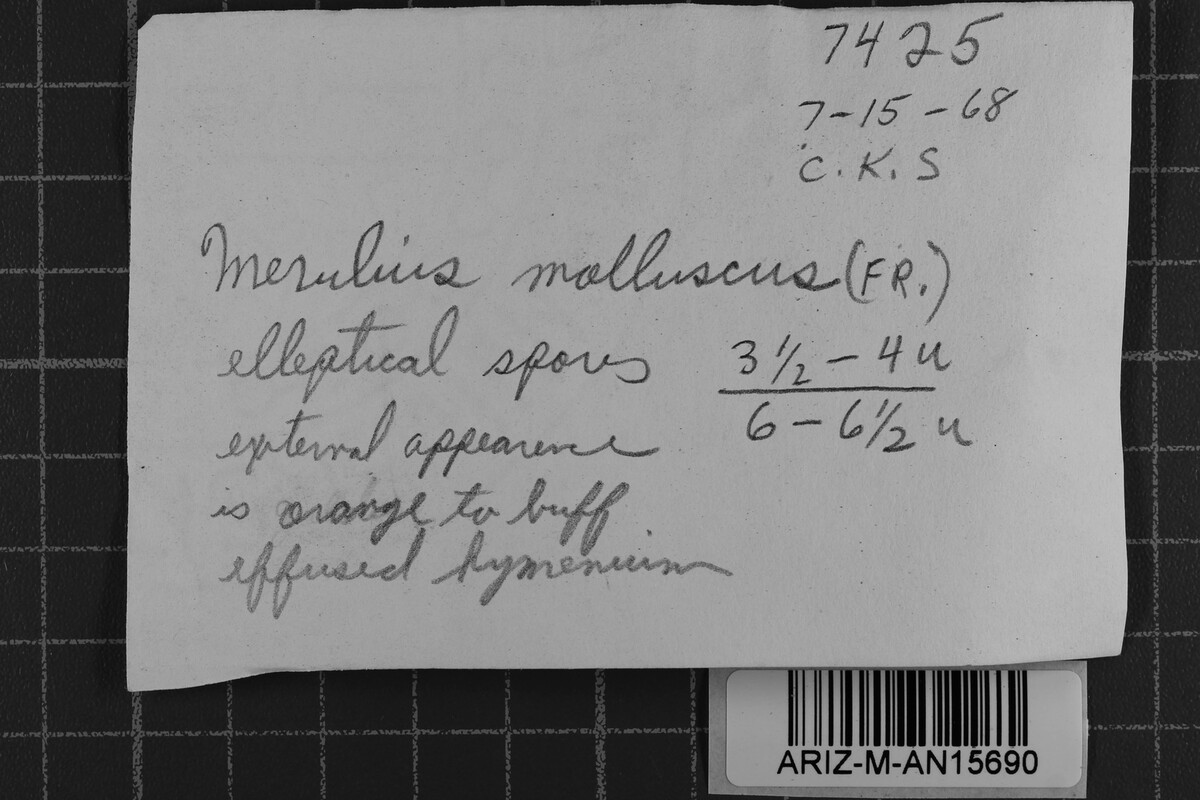 7425
7-15-68
C. K. S
Merulius molluscus (FR.)
elleptical spores 3 1/2 - 4 u
6 - 6 1/2 u
external appearence
is orange to buff
effused hymenium
ARIZ-M-AN15690